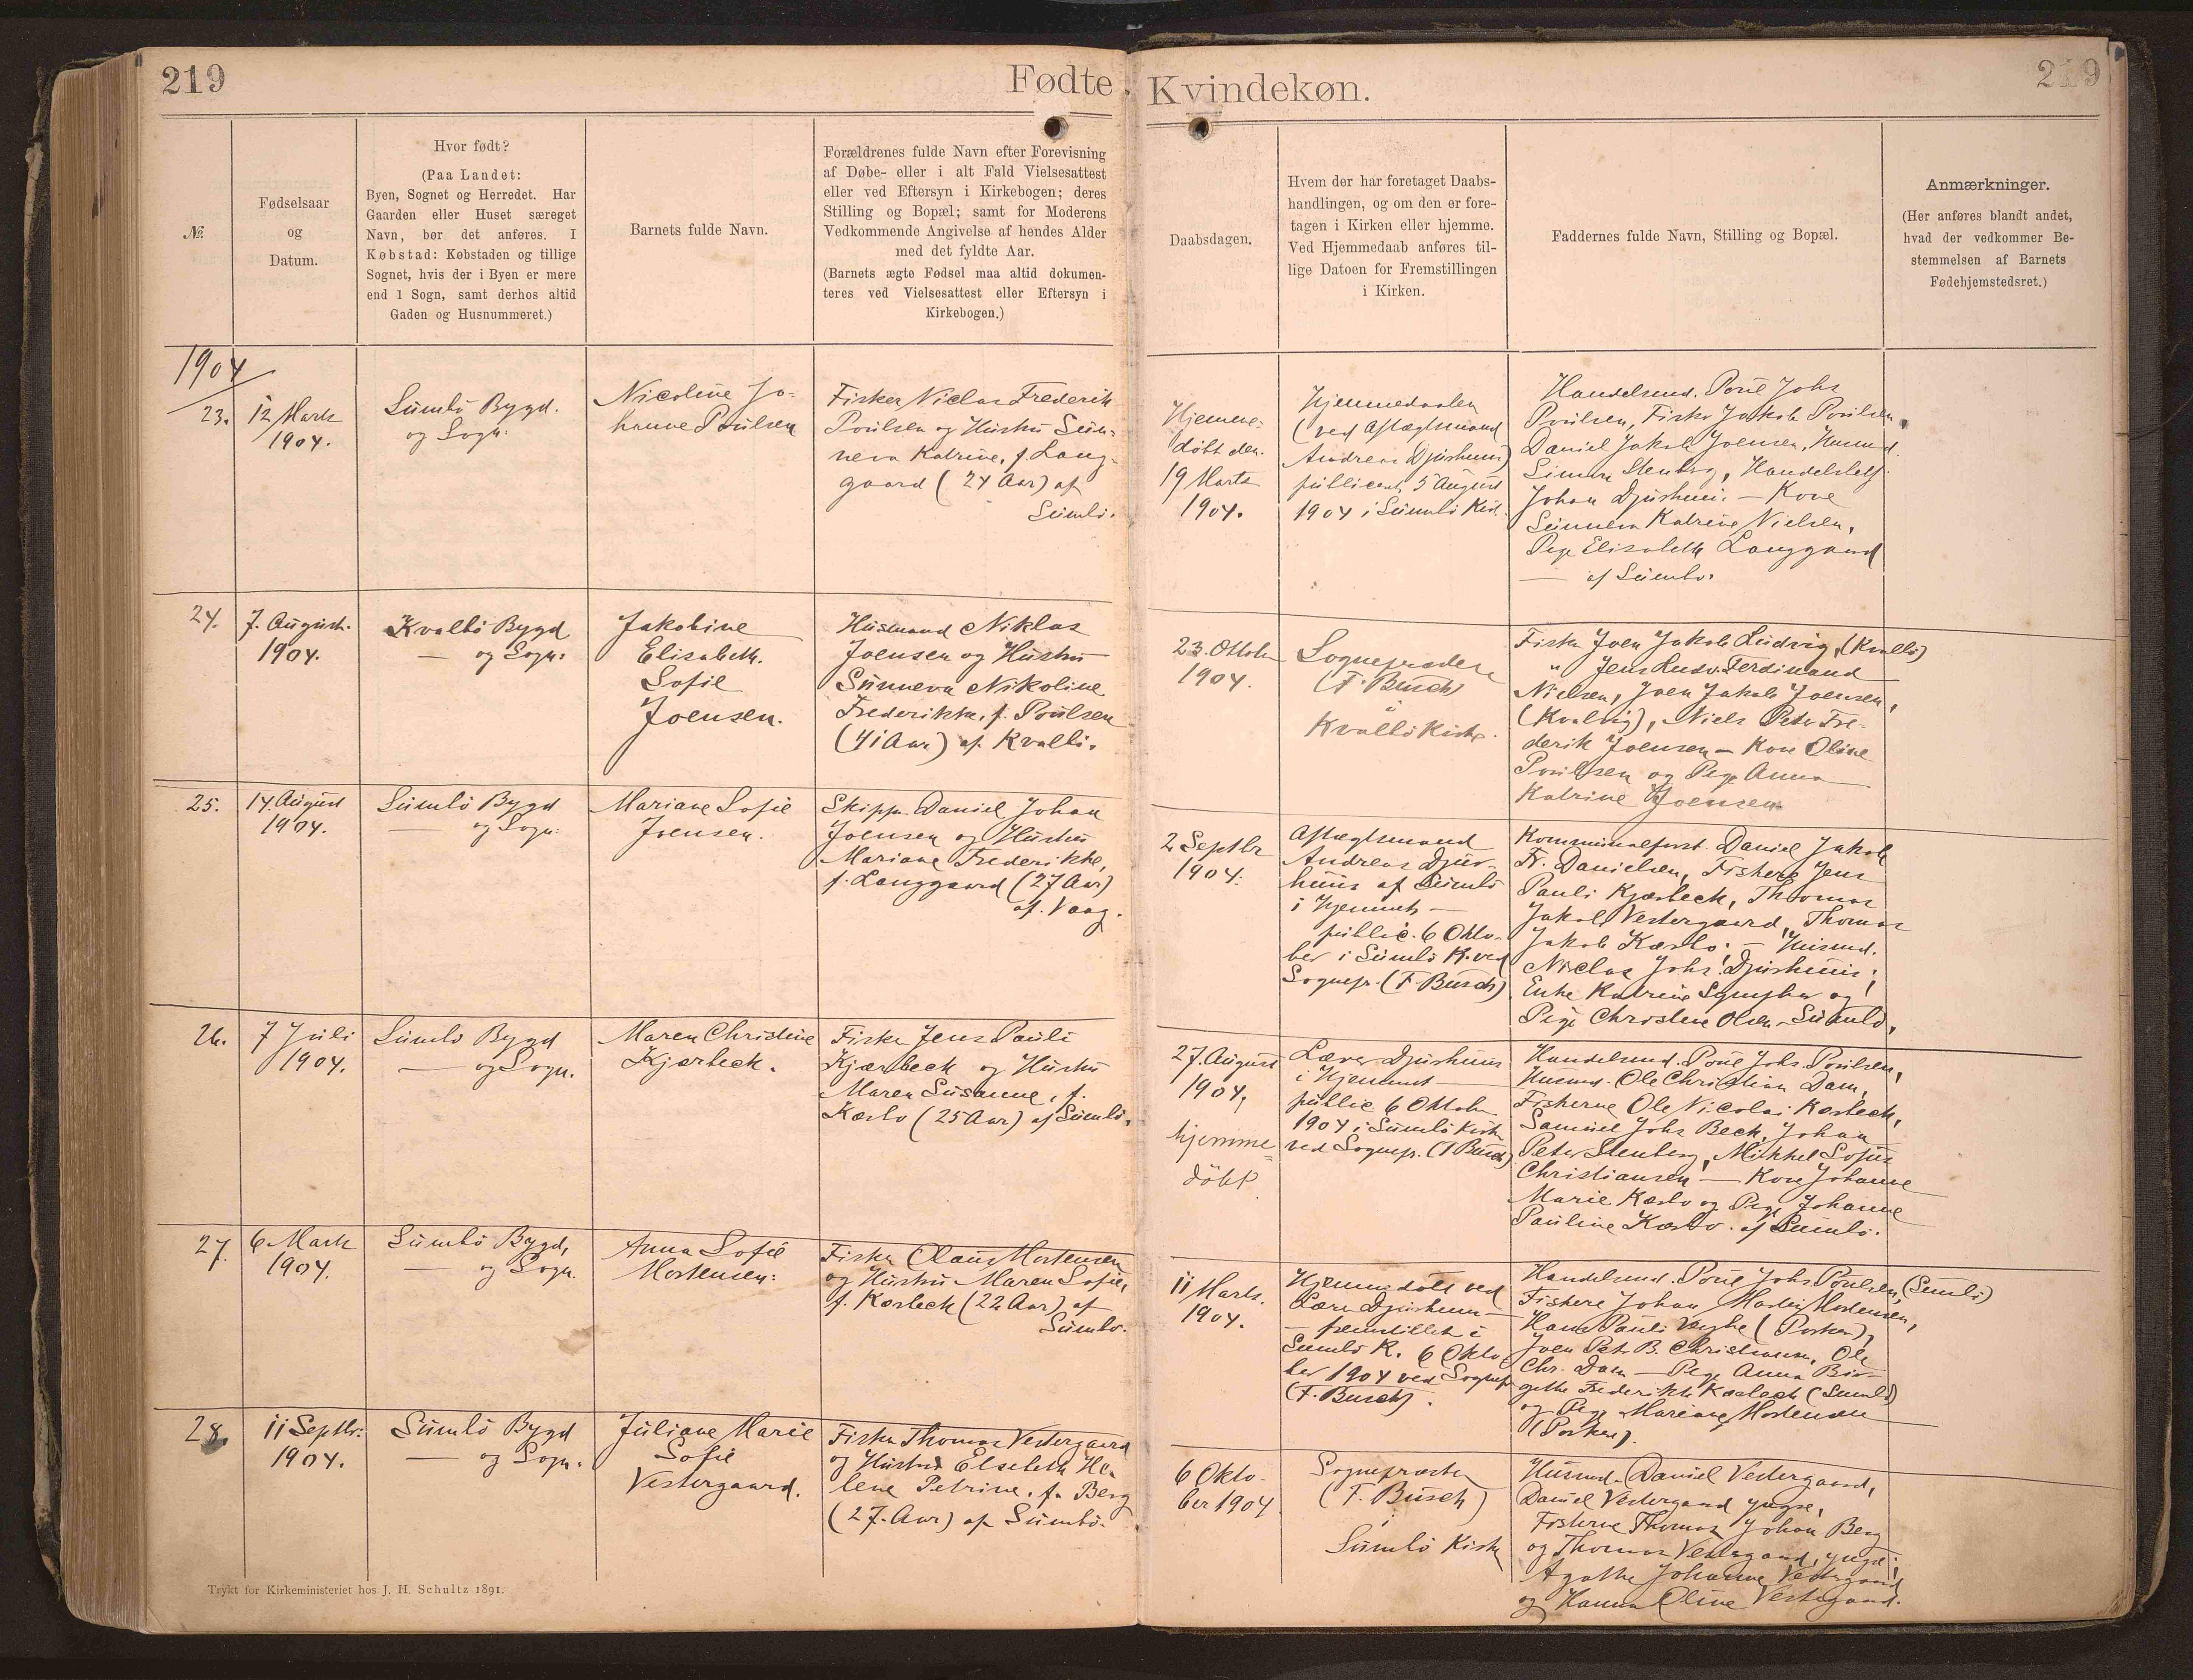 219
Fødte
Kvindekøn.
219
№
Fødselsaar
og
Datum.
Hvor født?
(Paa Landet:
Byen, Sognet og Herredet. Har
Gaarden eller Huset særeget
Navn, bør det anføres. I
Købstad: Købstaden og tillige
Sognet, hvis der i Byen er mere
end 1 Sogn, samt derhos altid
Gaden og Husnummeret.)
Barnets fulde Navn.
Forældrenes fulde Navn efter Forevisning
af Døbe- eller i alt Fald Vielsesattest
eller ved Eftersyn i Kirkebogen; deres
Stilling og Bopæl; samt for Moderens
Vedkommende Angivelse af hendes Alder
med det fyldte Aar.
(Barnets ægte Fødsel maa altid dokumen-
teres ved Vielsesattest eller Eftersyn i
Kirkebogen.)
Daabsdagen.
Hvem der har foretaget Daabs-
handlingen, og om den er fore-
tagen i Kirken eller hjemme.
Ved Hjemmedaab anføres til-
lige Datoen for Fremstillingen
i Kirken.
Faddernes fulde Navn, Stilling og Bopæl.
Anmærkninger.
(Her anføres blandt andet,
hvad der vedkommer Be-
stemmelsen af Barnets
Fødehjemstedsret.)
1904
23.
12 Marts
1904.
Sumbö Bygd.
og Sogn.
Nicoline Jo-
hanne Poulsen
Fisker Niclas Frederik
Poulsen og Hustru Sun-
neva Katrine, f. Lang-
gaard (24 Aar) af
Sumbö.
Hjemme-
döbt den
19 Marts
1904.
Hjemmedaaben
(ved Aftægtsmand
Andreas Djurhuus)
publiceret 5 August
1904 i Sumbö Kirke
Handelsmd. Poul Johs
Poulsen, Fisker Jakob Poulsen,
Daniel Jakob Joensen, Husmd.
Simon Stenberg, Handelsbetj.
Johan Djurhuus. — Kone
Sunneva Katrine Nielsen,
Pige Elisabeth Langgaard
— af Sumbö.
24.
7. August.
1904.
Kvalbö Bygd
— og Sogn.
Jakobine
Elisabeth
Sofie
Joensen.
Husmand Niklas
Joensen og Hustru
Sunneva Nikoline
Frederikke, f. Poulsen
(41 Aar) af Kvalbö.
23. Oktober
1904.
Sognepræsten
(F. Busch)
i
Kvalbö Kirke.
Fisker Joen Jakob Ludvig, (Kvalbö)
" Jens Ludv. Ferdinand
Nielsen, Joen Jakob Joensen,
(Kvalvig), Niels Peter Fre-
derik Joensen — Kone Oline
Poulsen og Pige Anna
Katrine Joensen
25.
14. August
1904.
Sumbö Bygd
— og Sogn.
Mariane Sofie
Joensen.
Skipper Daniel Johan
Joensen og Hustru
Mariane Frederikke,
f. Langgaard (27 Aar)
af Vaag.
2 Septbr
1904.
Aftægtsmand
Andreas Djur-
huus af Sumbö
i Hjemmet —
public. 6 Okto-
ber i Sumbö K. ved
Sognepr. (F. Busch)
Kommunalforst. Daniel Jakob
Fr. Danielsen, Fiskere Jens
Pauli Kjærbeck, Thomas
Jakob Vestergaard, Thomas
Jakob Kærbo. — Husmd.
Niclas Johs. Djurhuus;
Enke Katrine og
Pige Christine Olsen — Sumbö.
26.
7 Juli
1904.
Sumbö Bygd
— og Sogn.
Maren Christine
Kjærbeck.
Fisker Jens Pauli
Kjærbeck og Hustru
Maren Susanne, f.
Kærbo (25 Aar) af Sumbö.
27. August
1904,
hjemme-
döbt
Lærer Djurhuus
i Hjemmet —
public. 6 Oktober
1904 i Sumbö Kirke
ved Sognepr. (F. Busch)
Handelsmd. Poul Johs. Poulsen,
Husmd. Ole Christian Dam,
Fiskerne Ole Nicolai Kærbeck,
Samuel Johs Beck, Johan
Peter Stenberg, Mikkel Sofus
Christiansen — Kone Johanne
Marie Kærbo og Pige Johanne
Pauline Kærbo af Sumbö.
27.
6 Marts
1904.
Sumbö Bygd,
— og Sogn.
Anna Sofie
Mortensen.
Fisker Olaus Mortensen
og Hustru Maren Sofie,
f. Kærbeck (22 Aar) af
Sumbö.
11 Marts.
1904.
Hjemmedöbt ved
Lærer Djurhuus —
— fremstillet i
Sumbö K. 6 Okto-
ber 1904 ved Sognepr
(F. Busch).
Handelsmd. Poul Johs. Poulsen, (Sumbö)
Fiskere Johan Martin Mortensen,
Hans Pauli Vegbe (Porken),
Joen Peter B. Christiansen, Ole
Chr. Dam — Pige Anna Bir-
gethe Frederikke Kærbeck (Sumbö)
og Pige Mariane Mortensen
(Porken).
28.
11 Septbr.
1904.
Sumbö Bygd
— og Sogn.
Juliane Marie
Sofie
Vestergaard.
Fisker Thomas Vestergaard
og Hustru Elsebeth He-
lene Petrine, f. Berg
(27. Aar) af Sumbö.
6 Okto-
ber 1904
Sognepræsten
(F. Busch)
i
Sumbö Kirke
Husmd. Daniel Vestergaard,
Daniel Vestergaard yngre,
Fiskerne Thomas Johan Berg
og Thomas Vestergaard, yngre;
Agathe Johanne Vestergaard
og Hanna Oline Vestergaard.
Trykt for Kirkeministeriet hos J. H. Schultz 1891.